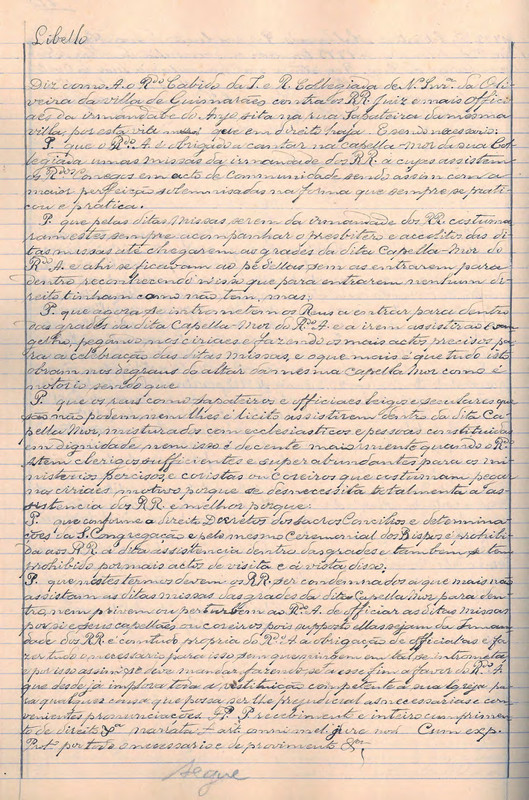 Libello
Diz como A. o Rdo Cabido da I. e R. Collegiada de N. Snrª da Oli-
veira da villa de Guimarães contra os RR. Juiz e mais offici-
aes da irmandade do Anjo sita na rua Sapateira da mesma
villa, por esta vila que em direito haja. E sendo necessario:
P. que o Rdo A. é obrigado a cantar na capella-mor da sua Col-
legiada umas missas da irmandade dos RR. a cujas assistem
os Rdos Conegos em acto de communidade sendo assim com a
maior perfeição solemnisadas na forma que sempre se prati-
cou e pratica.
P. que pelas ditas missas serem da irmandade dos RR. costuma-
ram estes sempre acompanhar o presbitero e acolitos das di-
tas missas até chegarem ás grades da dita Capella-Mor do
Rdo A. e ahi se ficavam ao pé d'ellas sem as entrarem para
dentro reconhecendo n'isso que para entrarem nenhum di-
reito tinham como não tem, mas:
P. que agora se intromettem os Reus a entrar para dentro
das grades da dita Capella-Mor do Rdo A. e a irem assistir ao Evan-
gelho, pegando nos ciriaes e fazendo os mais actos precisos pa-
ra a celebração das ditas missas, e o que mais é que tudo isto
obram nos degraus do altar da mesma Capella Mor como é
notorio, sendo que
P. que os reus como sapateiros e officiaes leigos e seculares que
são não podem nem lhes é licito assistirem dentro da dita Ca-
pella Mor, misturados com ecclesiasticos e pessoas constituidas
em dignidade, nem isso é decente maiormente quando o Rdo
A tem clerigos sufficientes e superabundantes para os mi-
nisterios percisos, e coristas ou coreiros que costumam pegar
nos ciriaes, motivo porque se desnecessita totalmente a as-
sistencia dos RR. e melhor porque:
P. que conforme a direito Decretos dos Sacros Concilios e determina-
ções da S. Congregação e pelo mesmo Ceremonial dos Bispos é prohibi-
da aos RR. a dita assistencia dentro das grades e tambem se tem
prohibido por mais actos de visita e á vista disso:
P. que n'estes termos devem os RR. ser condemnados a que mais não
assistam ás ditas missas das grades da dita Capella Mor para den-
tro, nem privem ou perturbem ao Rdo A. de officiar as ditas missas
por si e seus capellães ou coreiros pois supposto ellas sejam da Irman-
dade dos RR. é comtudo propria do Rdo A. a obrigação de official-as e fa-
zer tudo o necessario para isso sem os requerirem ou tal se intrometter,
e por isso assim se deve mandar, fazendo-se ta esse fim a favor do Rdo A.
que desde já implora toda a restituição competente á sua Igreja pa-
ra qualquer cousa que possa ser-lhe prejudicial as necessarias e con-
venientes pronunciações. P. P. Recebimento e inteiro cumprimen-
to de direito &ª narrata et art. omni mel. jure nos Cum exp.
Prot. por todo o necessario e de provimento &ª
segue